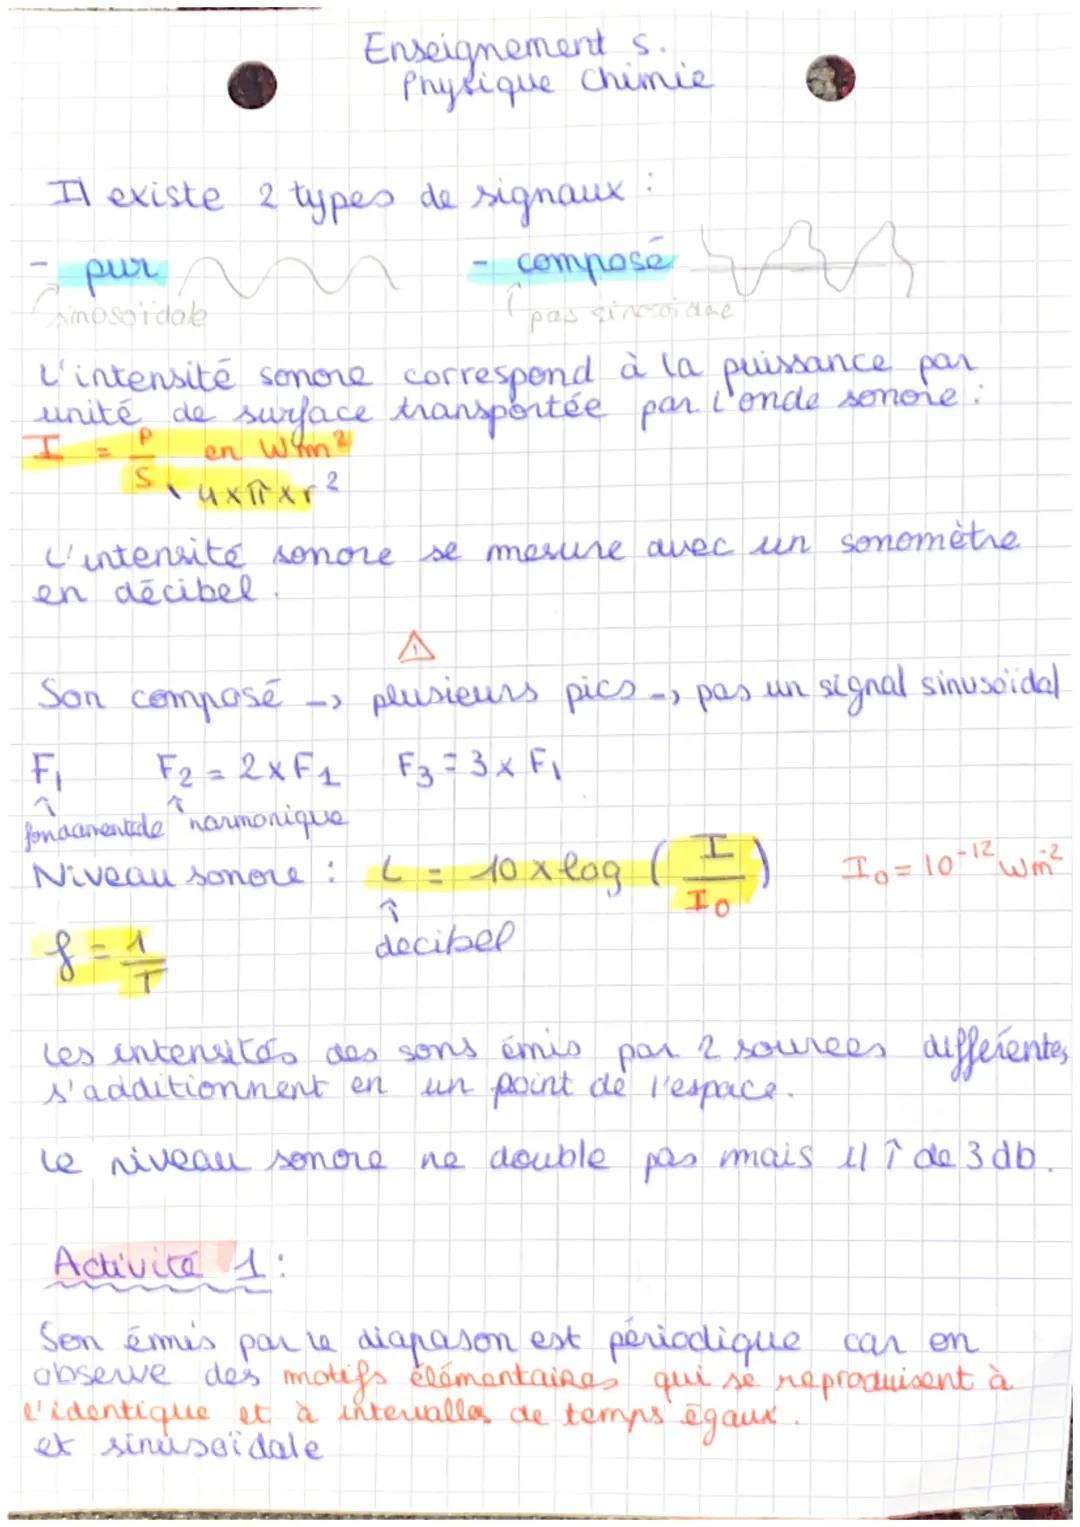 Enseignement s.
Physique Chimie
Il existe 2 types de signaux :
- pur - composé
sinosoïdale pas sinosoidae
L'intensité sonore correspond à la puissance par
unité de surface transportée par l'onde sonore :
I = P/S en W/m²
4xπxr²
L'intensité sonore se mesure avec un sonomètre
en décibel.
Son composé -> plusieurs pics -> pas un signal sinusoïdal
F₁ F₂ = 2xF₁ F₃ = 3xF₁
fondamentale harmonique
Niveau sonore : L = 10 x log (I/I₀) I₀ = 10⁻¹² Wm⁻²
decibel
f = 1/T
Les intensités des sons émis par 2 sources différentes
s'additionnent en un point de l'espace.
Le niveau sonore ne double pas mais il ↑ de 3 db.
Activité 1 :
Son émis par le diapason est périodique car on
observe des motifs élémentaires qui se reproduisent à
l'identique et à intervalles de temps égaux.
et sinusoïdale